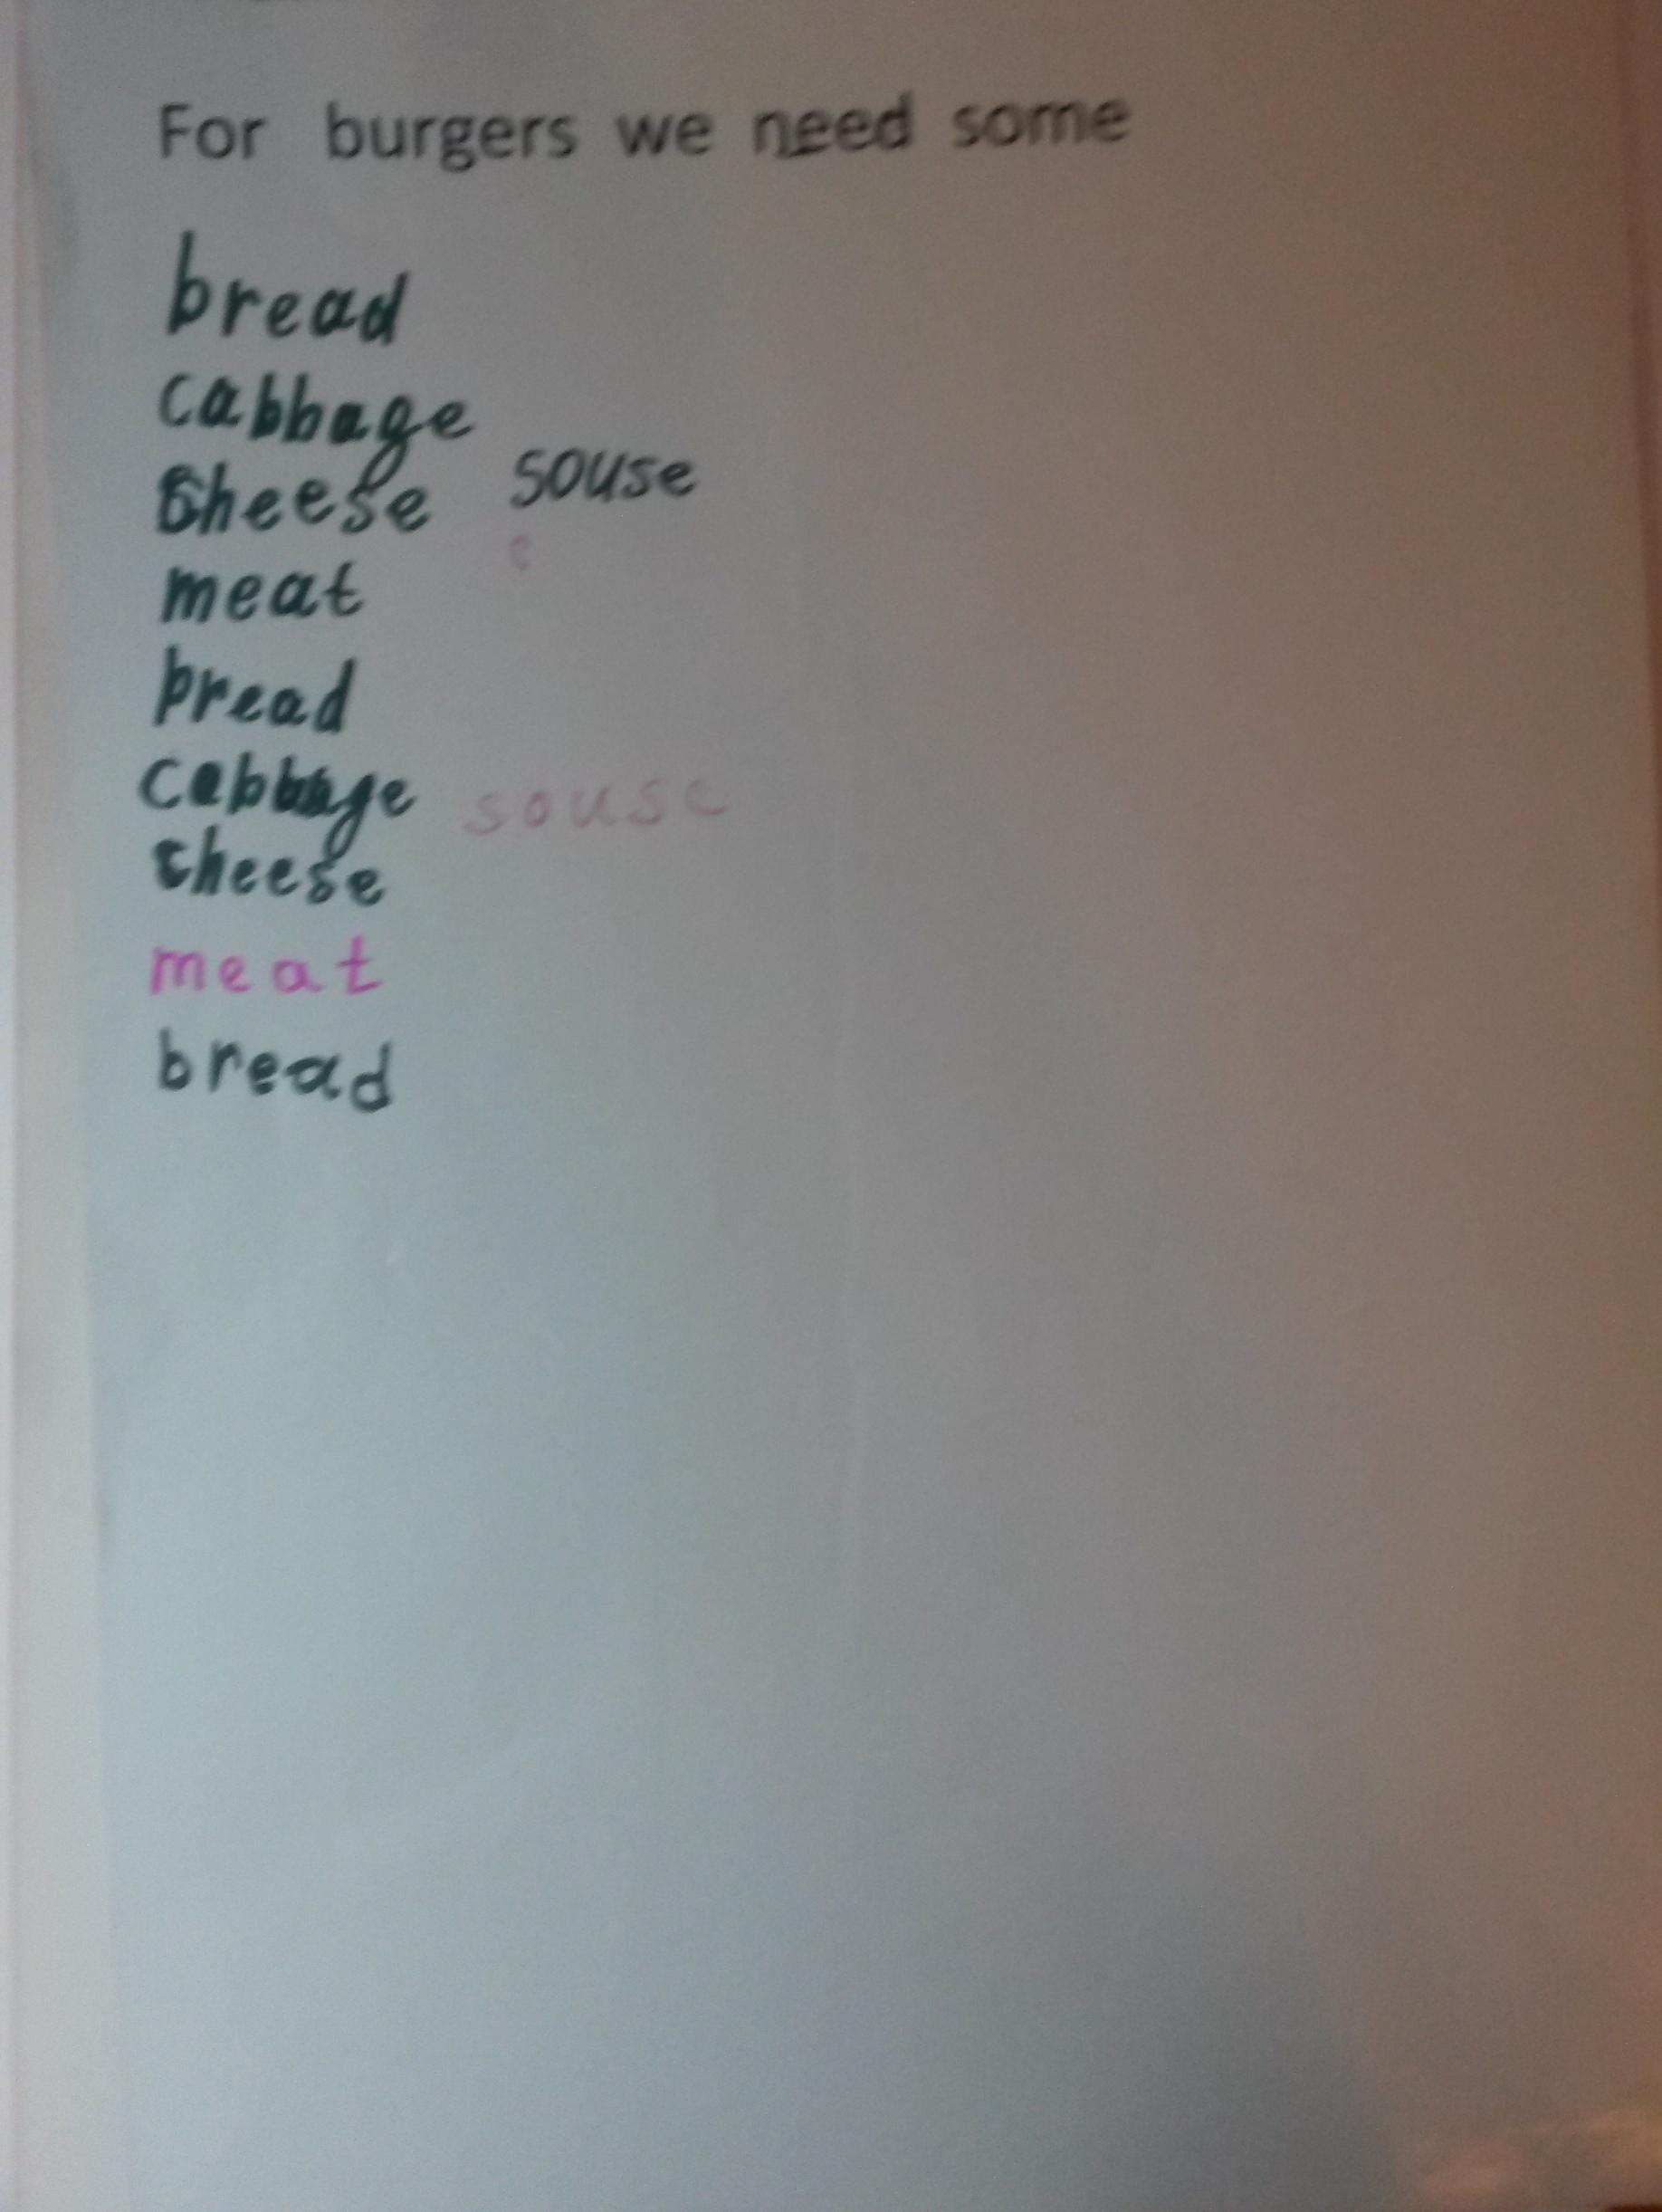 For burgers we need some
bread
cabbage
cheese souse
meat
bread
cabbage souse
cheese
meat
bread